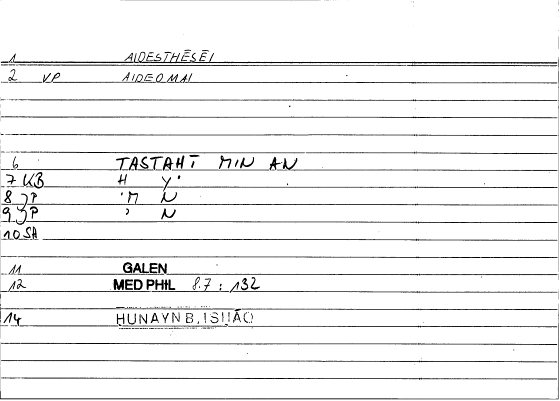 1 AIDESTHĒSĒI
2 VP AIDEOMAI
6 TASTAHĪ MIN AN
7 KB H Y'
8 JP 'M N
9 JP ' N
10 SA
11 GALEN
12 MED PHIL 8.7 : 132
14 HUNAYN B. ISḤĀQ